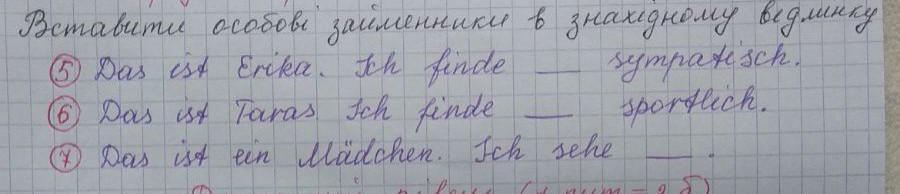 Вставити особові займенники в знахідному відмінку
⑤ Das ist Erika. Ich finde __ sympatisch.
⑥ Das ist Taras. Ich finde __ sportlich.
⑦ Das ist ein Mädchen. Ich sehe __.